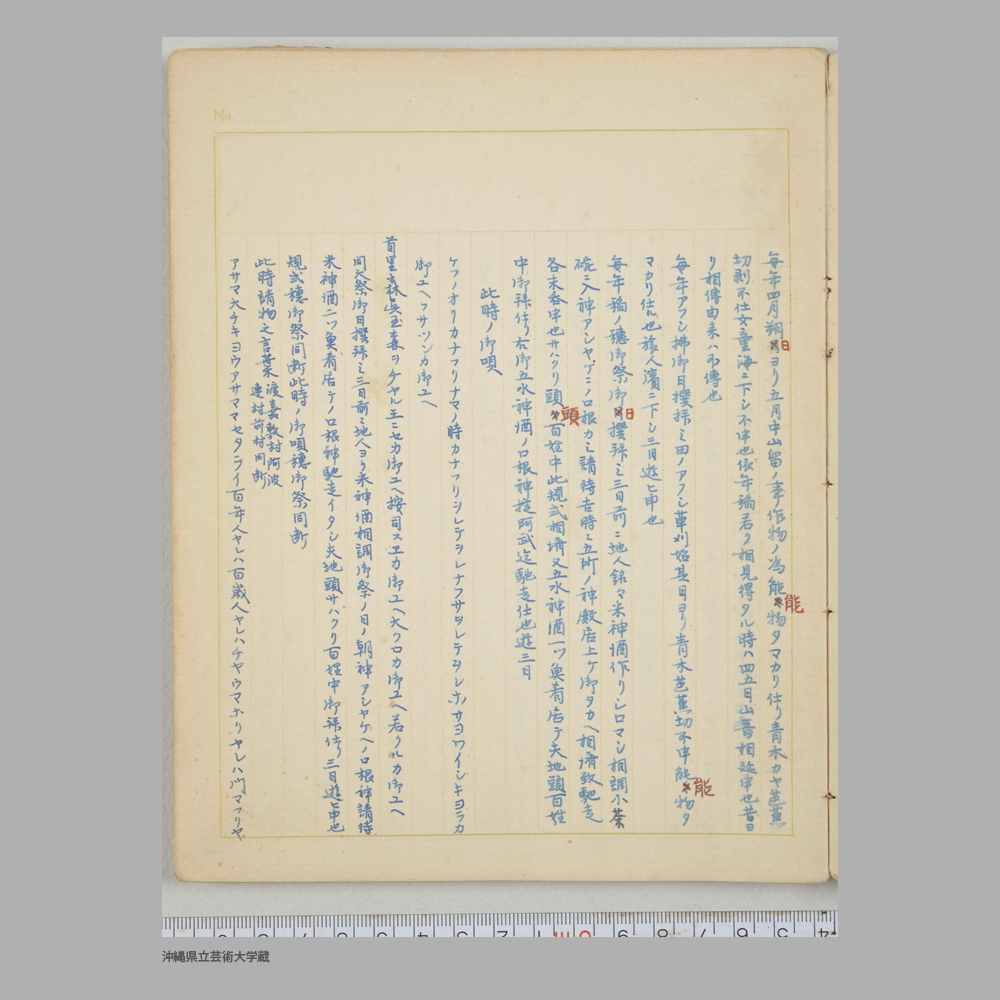 No.
毎年四月朔日ヨリ五月中山留ノ事作物ノ為能物タマカリ仕リ青木カヤ芭蕉
切剥不仕女童海ニ下シ不申也依年稲若ク相見得タル時ハ四五日山留相延申也昔ヨ
リ相傳由来ハ不傳也
毎年アフシ拂御日撰拝ミ田ノアフシ草刈始其日ヨリ青木芭蕉切不申能物タ
マカリ仕ル也旅人濱ニ下シ三日遊ヒ申也
毎年稲ノ穂御祭御日撰拝ミ三日前ニ地人銘々米神酒作リシロマシ相調小茶
碗ニ入神アシヤゲニノロ根カミ請待吉時ミ五所ノ神殿居上ケ御タカヘ相濟致馳走
各末呑申也サハクリ頭頭百姓中此規式相濟又五水神酒一ツ魚肴居テ夫地頭百姓
中御拝仕リ右御五水神酒ノロ根神掟阿武迄馳走仕也遊三日
此時ノ御唄
ケフノオリカナフリナマノ時カナフリシレテヲレナフサヲレテヲレホノサヨワイシキヨラカ
御ユヘフサツンカ御ユヘ
首里森真玉森ヲチヤル王ニセカ御ユヘ按司スエカ御ユヘ大クロカ御ユヘ若クルカ御ユヘ
同大祭御日撰拝ミ三日前ニ地人ヨリ米神酒相調御祭ノ日ノ朝神アシヤケヘノロ根神請待
米神酒二ツ魚肴居テノロ根神馳走イタシ夫地頭サハクリ百姓中御拝仕リ三日遊ヒ申也
規式穂御祭同断此時ノ御唄穂御祭同断
此時請物之言葉渡嘉敷村阿波
連村前村同断
アサマ大チキヨウアサママセタライ百年人ヤレハ百歳人ヤレハチヤウマホリヤレハ門マフリヤ
沖縄県立芸術大学蔵